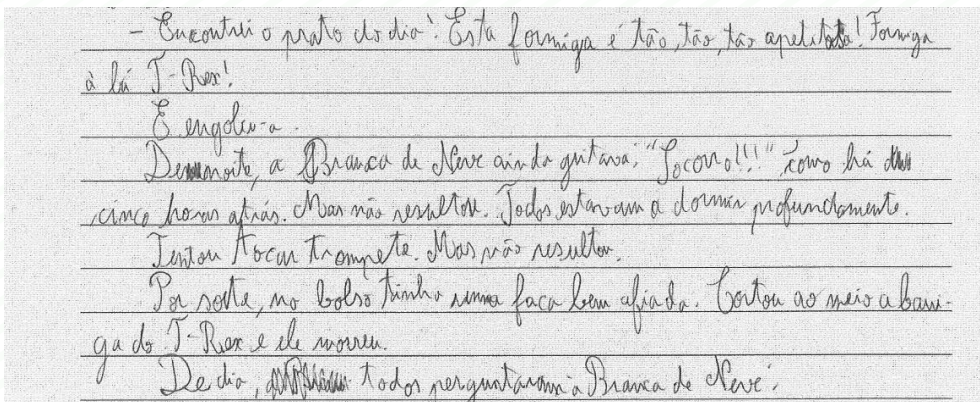 - Encontrei o prato do dia! Esta formiga é tão, tão, tão apelitosa! Formiga
à lá T-Rex!
E engoliu-a.
De noite, a Branca de Neve ainda gritava: "Socorro!!!" como há
cinco horas atrás. Mas não resultou. Todos estavam a dormir profundamente.
Tentou tocar trompete. Mas não resultou.
Por sorte, no bolso tinha uma faca bem afiada. Cortou ao meio a barri-
ga do T-Rex e ele morreu.
De dia, todos perguntaram à Branca de Neve: